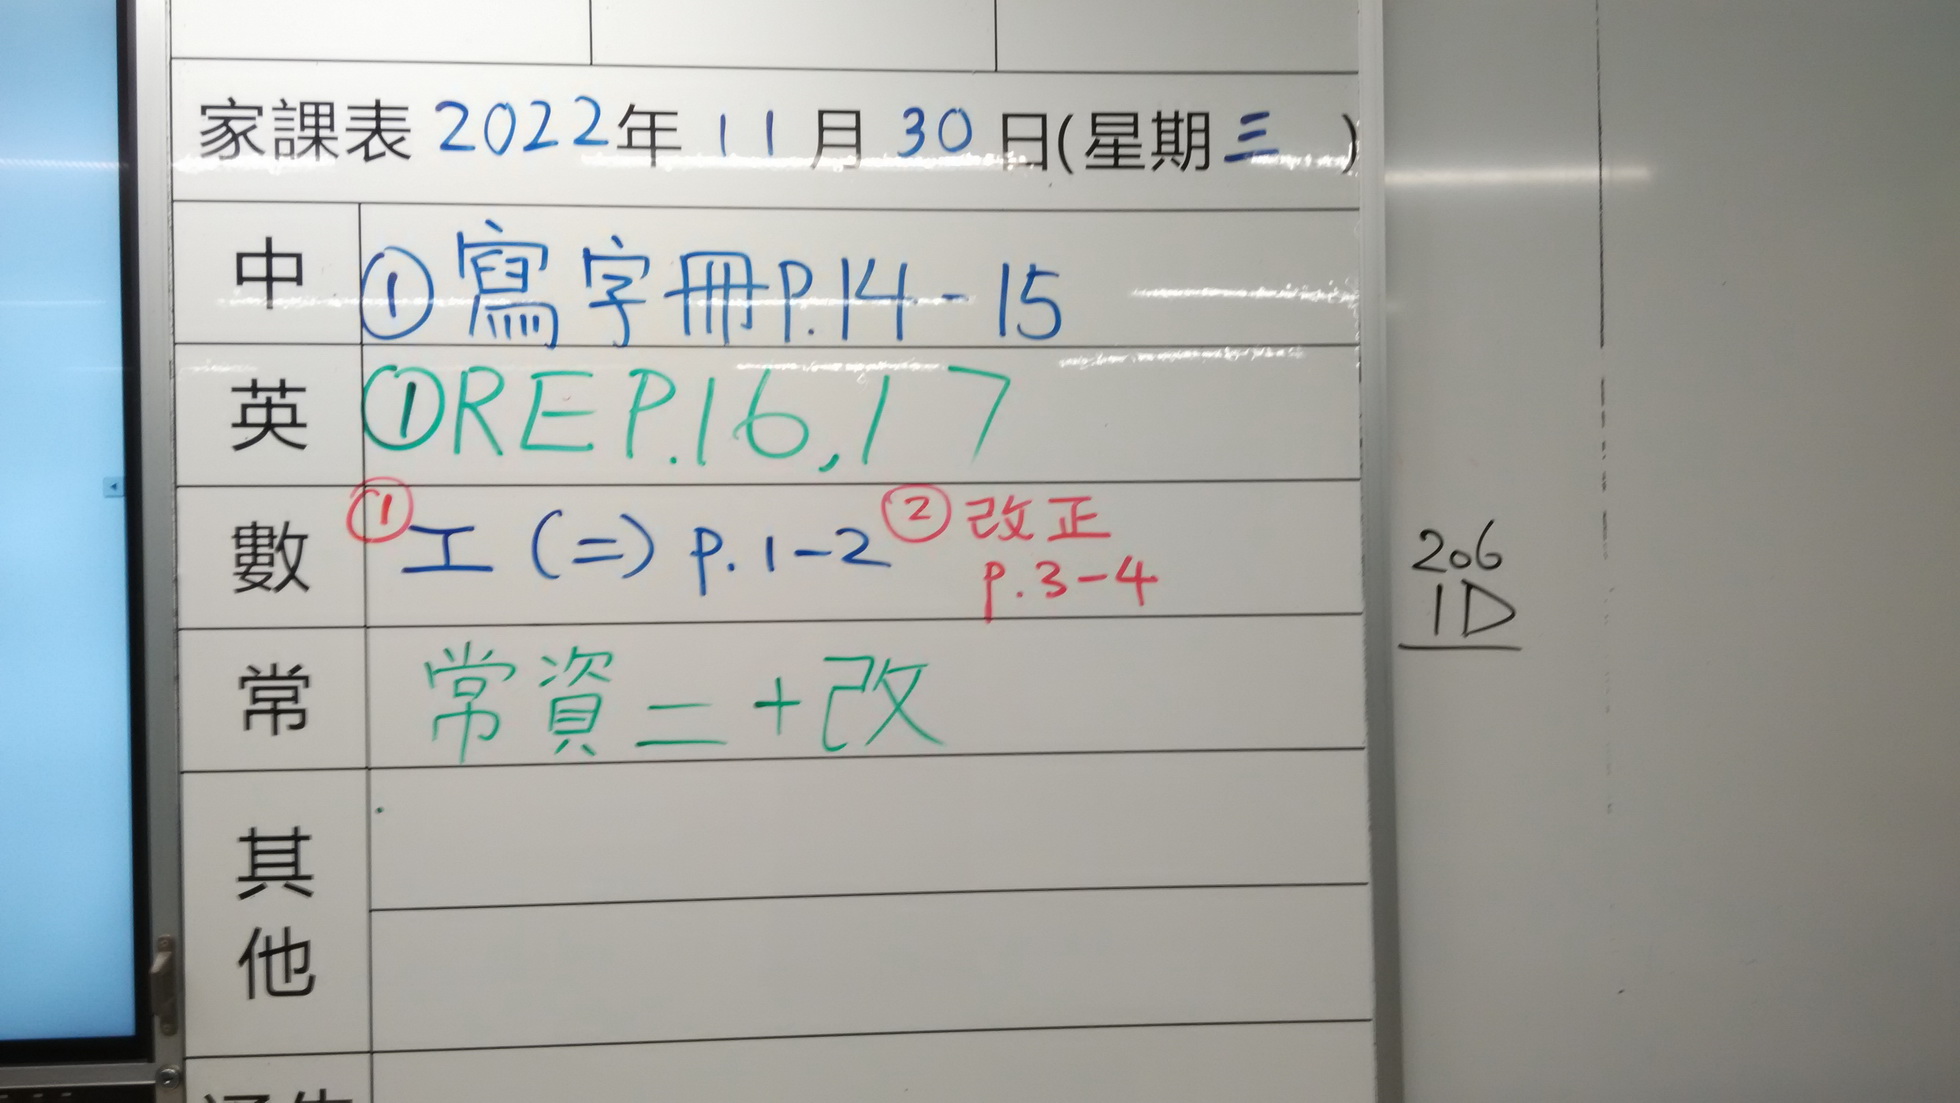 家課表 2022年 11月 30日(星期三)
中 ① 寫字冊P.14-15
英 ① RE P.16,17
數 ① 工(二) p.1-2 ② 改正
p.3-4
常 常資二+改
其
他
206
1D